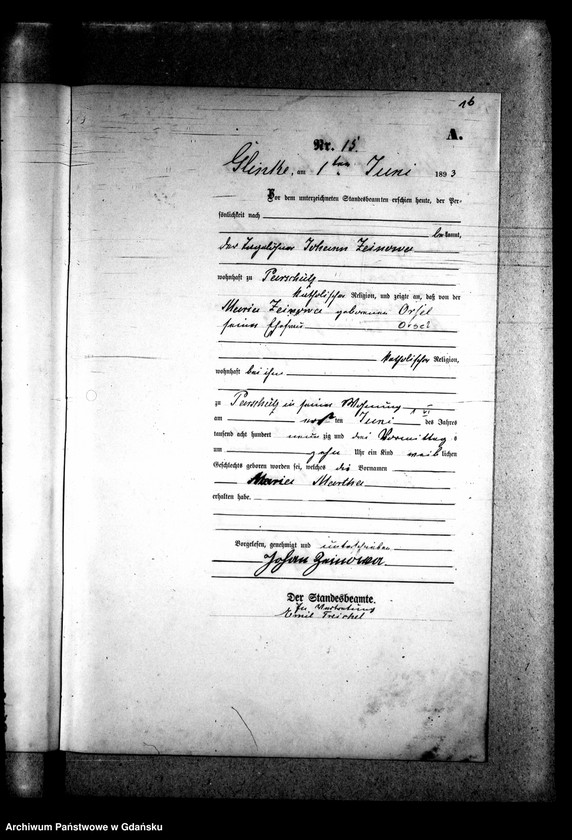 16
A.
Nr. 15.
Glinke, am 1ten Juni 1893
Vor dem unterzeichneten Standesbeamten erschien heute, der Per-
sönlichkeit nach
bekannt,
der Johann Zeinowa
wohnhaft zu Parschütz
katholischer Religion, und zeigte an, daß von der
Maria Zeinowa geborenen Orsel
seiner Ehefrau Orsel
katholischer Religion,
wohnhaft bei ihm
zu Parschütz in seiner Wohnung
am ten Juni des Jahres
tausend acht hundert neun zig und drei Vormittags
um zehn Uhr ein Kind weiblichen
Geschlechts geboren worden sei, welches die Vornamen
Maria Martha
erhalten habe.
Vorgelesen, genehmigt und unterschrieben
Johan Zeinowa
Der Standesbeamte.
In Vertretung
Emil Treichel
Archiwum Państwowe w Gdańsku